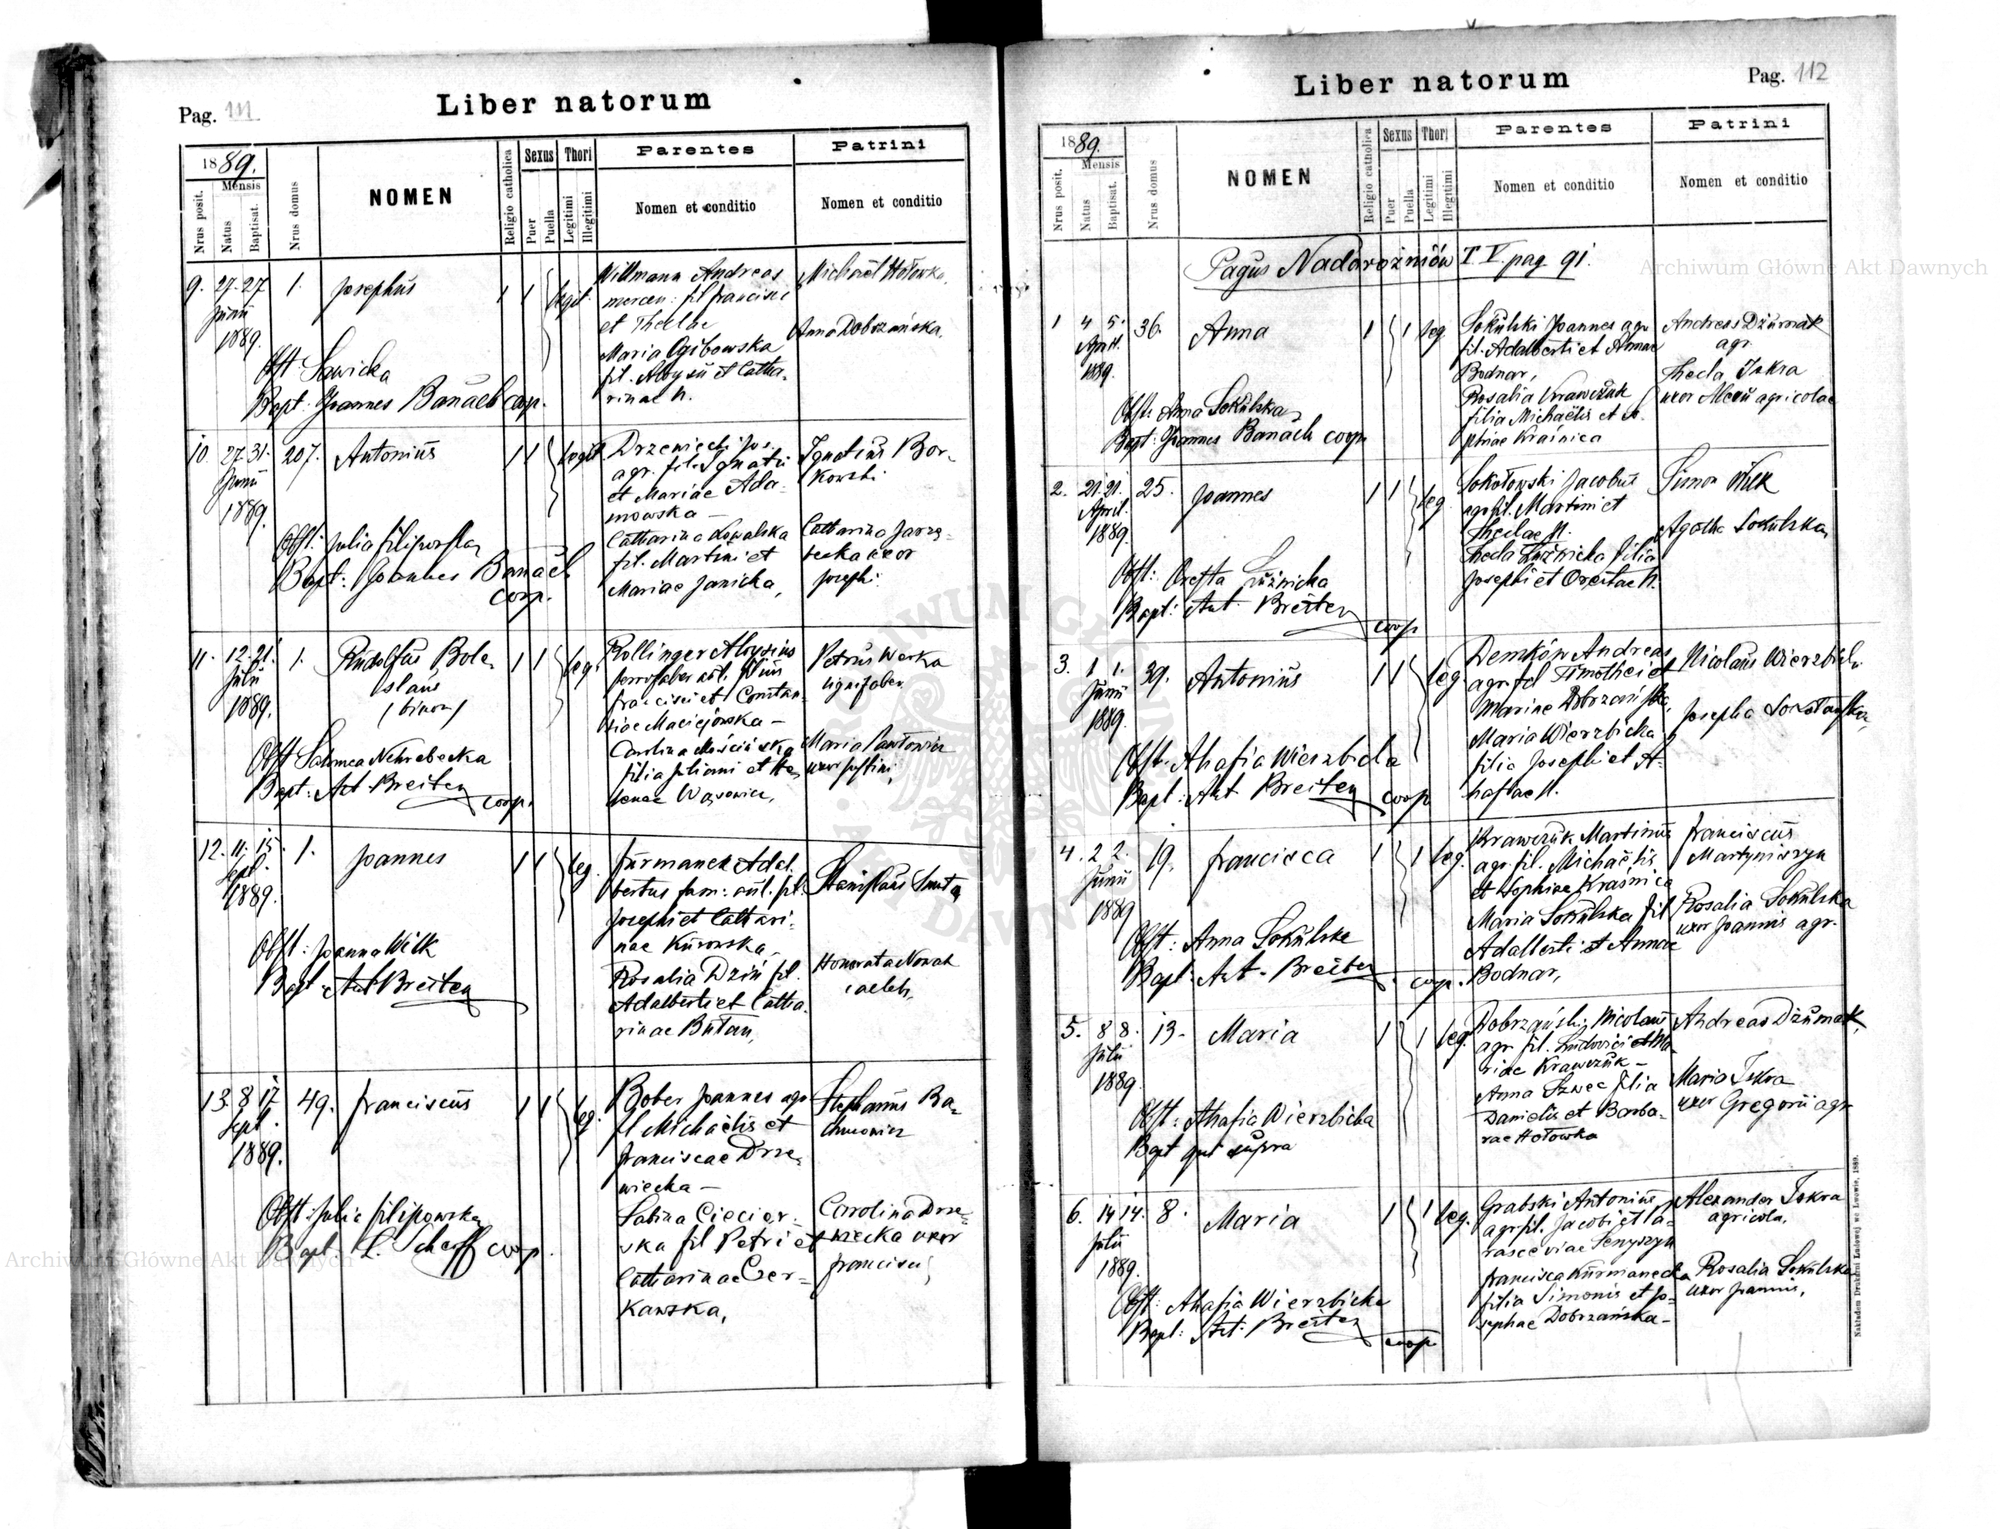 Pag. 111
Liber natorum
1889.
Mensis
Nrus posit.
Natus
Baptisat.
Nrus domus
NOMEN
Religio catholica
Sexus
Puer
Puella
Thori
Legitimi
Illegitimi
Parentes
Nomen et conditio
Patrini
Nomen et conditio
9. 27. 27 1. Josephus 1 1 legit.
Junii
1889.
Obst Sawicka
Bapt. Joannes Banach coop.
Willmann Andreas
mercen: fil francisci
et Theclae
Maria Ogibowska
fil. Aloysii et Catha-
rinae N.
Michael Hołowka,
Anna Dobrzańska,
10. 27. 31. 207. Antonius 1 1 legit
Junii
1889.
Obst: Julia Filipowska
Bapt: Joannes Banach
coop.
Drzewiecki Jos.
agr. fil. Ignatii
et Mariae Ada-
mowska —
Catharina Kowalska
fil. Martini et
Mariae Janicka,
Ignatius Bor-
kowski
Catharina Jarze-
uxor
Josephi
11. 12. 21. 1. Rudolfus Bole- 1 1 leg.
Julii slaus
1889. (binom)
Obst Salomea Nehrebecka
Bapt: Ant. Breiter
coop.
Rollinger Aloysius
filius
francisci et Constan-
tiae Maciejowska —
Carolina Mościńska
filia Juliani et He-
lenae Wąsowicz,
Petrus Werka
lignifaber
Maria Pawłowicz
uxor Justini,
12. 11. 15. 1. Joannes 1 1 leg.
Sept.
1889.
Obst: Joanna Wilk
Bapt. Ant Breiter
Furmanek Adal-
bertus fam: aul. fil.
Josephi et Cathari-
nae Kurowska,
Rosalia Dziu fil.
Adalberti et Catha-
rinae Butan,
Stanislaus Smuta
Honorata Nowak
caelebs,
13. 8 17 49. franciscus 1 1 leg.
Sept.
1889.
Obst: Julia filipowska
Bapt. L. Scherff coop.
Bober Joannes agr
fil Michaelis et
franciscae Drze-
wiecka —
Sabina Ciecier-
ska fil Petri et
Catharinae Czer-
kawska,
Stephanus Ba-
Carolina Drze-
wiecka uxor
francisci,
Liber natorum
Pag. 112
1889.
Mensis
Nrus posit.
Natus
Baptisat.
Nrus domus
NOMEN
Religio catholica
Sexus
Puer
Puella
Thori
Legitimi
Illegitimi
Parentes
Nomen et conditio
Patrini
Nomen et conditio
Pagus Nadorożniów T. V. pag 91.
1 4 5. 36. Anna 1 1 leg
April.
1889.
Obst: Anna Sokulska
Bapt: Joannes Banach coop
Sokulski Joannes agr
fil. Adalberti et Annae
Bodnar,
Rosalia Krawczuk
filia Michaelis et So-
phiae Kraśnica
Andreas Dziurmak
agr.
Thecla Tokra
uxor agricolae
2. 21. 21. 25. Joannes 1 1 leg
April.
1889.
Obst: Łuźnicka
Bapt: Ant. Breiter
coop
Sokołowski Jacobus
agr fil. Martini et
Theclae N.
Thecla Łuźnicka filia
Josephi et N.
Simon Wilk
Agatha Sokulska
3. 1 1. 39. Antonius 1 1 leg.
Junii
1889.
Obst. Ahafia Wierzbicka
Bapt: Ant Breiter coop
Demków Andreas
agr fil Timothei et
Mariae Dobrzańska,
Maria Wierzbicka
filia Josephi et A-
hafiae N.
Nicolaus Wierzbicki
Josepha Sokołowska,
4. 2 2. 19. francisca 1 1 leg.
Junii
1889
Obst: Anna Sokulska
Bapt: Ant. Breiter
coop.
Krawczuk Martinus
agr. fil. Michaelis
et Sophiae Kraśnica
Maria Sokulska fil
Adalberti et Annae
Bodnar,
franciscus
Martyniszyn
Rosalia Sokulska
uxor Joannis agr.
5. 8 8. 13. Maria 1 1 leg.
Julii
1889.
Obst: Ahafia Wierzbicka
Bapt qui supra
Dobrzański Nicolaus
agr. fil. Ludovici et Ma-
riae Krawczuk —
Anna Szwec filia
Danielis et Barba-
rae Hołowka
Andreas Dziurmak,
Maria Tokra
uxor Gregorii agr
6. 14 14. 8. Maria 1 1 leg.
Julii
1889.
Obst: Ahafia Wierzbicka
Bapt: Ant: Breiter
coop
Grabski Antonius
agr fil. Jacobi et Pa-
rasceviae Senyszyn
francisca Kurmanecka
filia Simonis et Jo-
sephae Dobrzańska —
Alexander Tokra
agricola,
Rosalia Sokulska
uxor Joannis,
Nakładem Drukarni Ludowej we Lwowie, 1889.
Archiwum Główne Akt Dawnych
Archiwum Główne Akt Dawnych